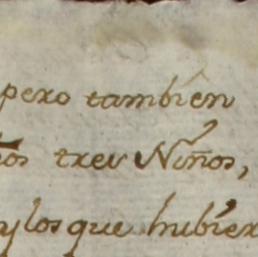 pero tambien
tres Niños,
y los que hubier